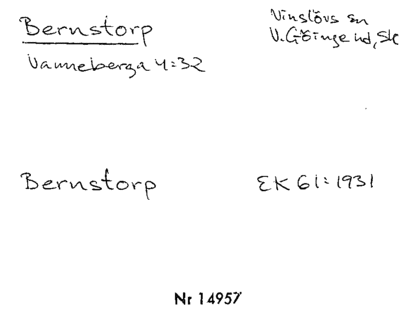 Bernstorp
Vinslövs sn
V. Göinge hd, Sk
Vanneberga 4:32
Bernstorp
EK 61:1931
Nr 14957